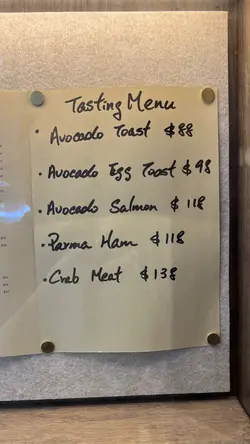 Tasting Menu
• Avocado Toast $88
• Avocado Egg Toast $98
• Avocado Salmon $118
• Parma Ham $118
• Crab Meat $138